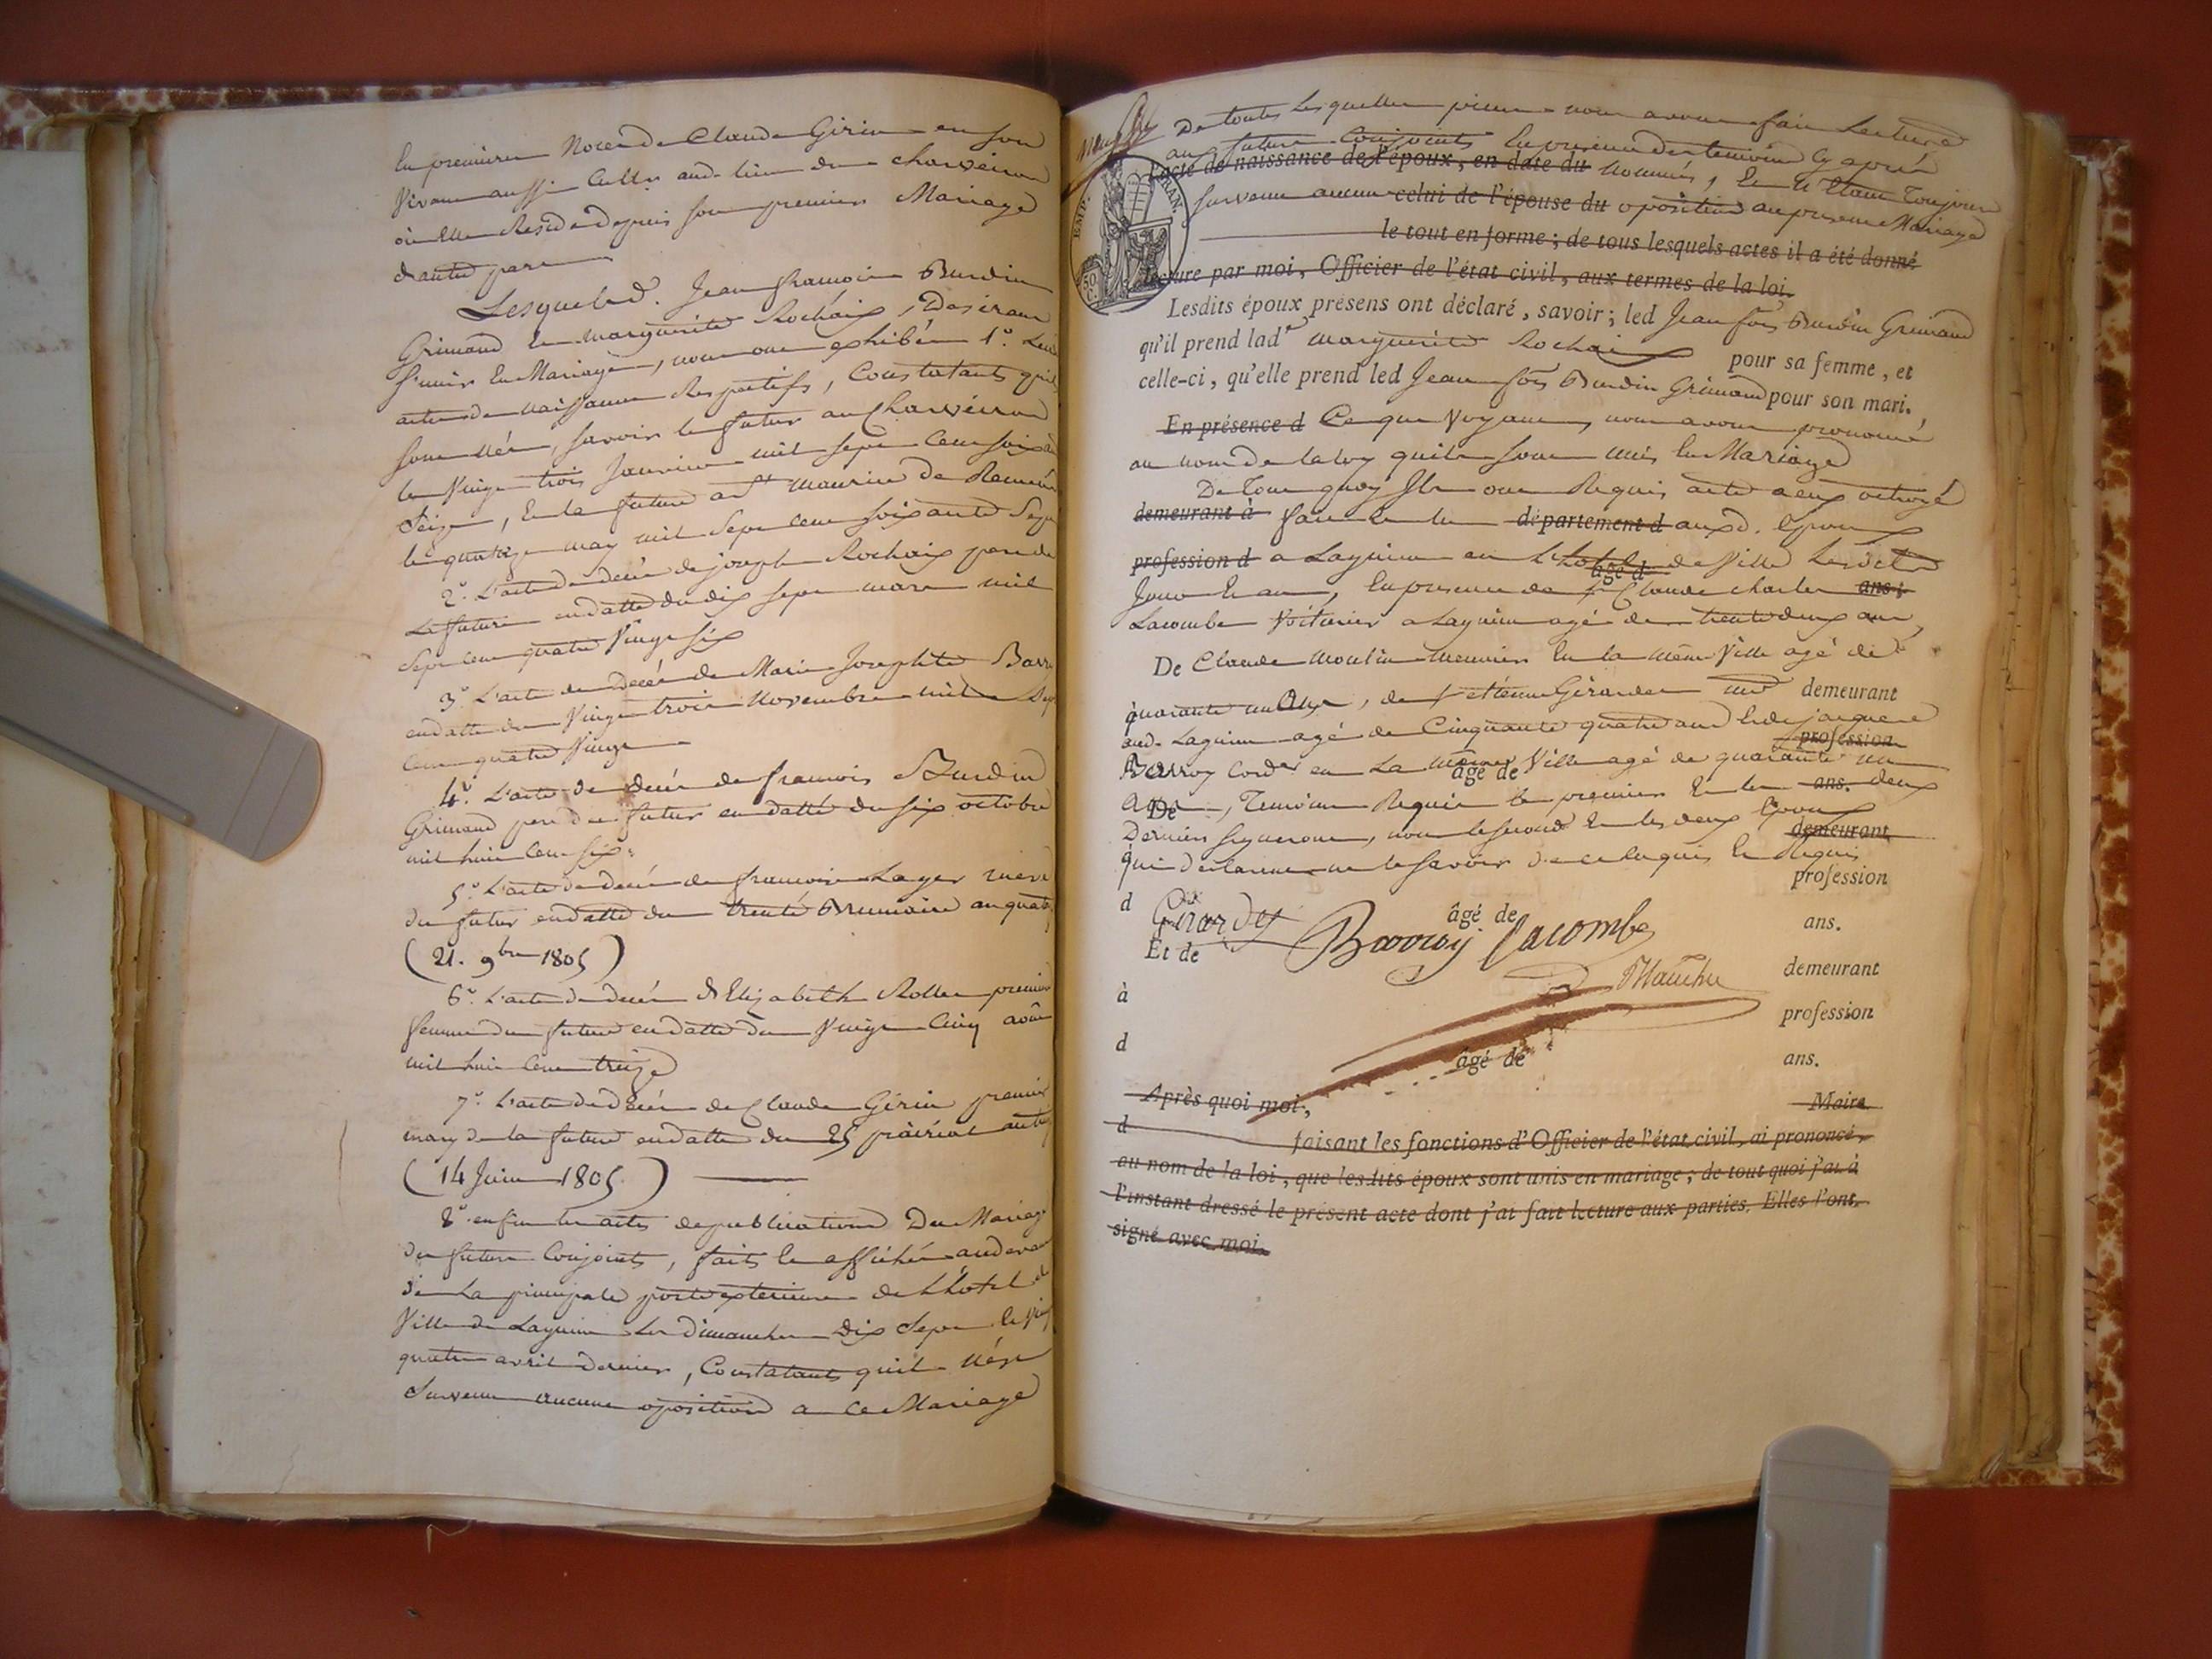 En premieres Noces de Claude Girin en son
Vivant aussi Cultr. aud. lieu de charvéiron
où Elle Reside depuis son premier Mariage
d'autre part
Lesquels d. Jean françois Burdin
Grimand Et marguerite Rochaix, Desirant
s'unir En Mariage, nous ont exhibés 1°. Leurs
actes de naissance Respectifs, Constatants qu'ils
sont nés, savoir le futur au Charvéiron
le Vingt trois Janvier mil sept Cent soixante
Seize, Et la future a St. maurice de Remens
le quatorze may mil Sept Cent soixante Sept
2°. L'acte de decés de joseph Rochaix pere de
La future en datte du dix sept mars mil
Sept cent quatre Vingt six
3°. L'acte de Decés de Marie Josephte
en datte du Vingt trois Novembre mil Sept
Cent quatre Vingt
4°. L'acte de decés de françois Burdin
Grimand pere du futur en datte du six octobre
mil huit Cent six.
5°. L'acte de decés de françoise Layer mere
du futur en datte du trente Brumaire an quatorze
(21. 9bre 1805)
6°. L'acte de decés d'Elizabeth Rollet premiere
femme du futur en datte du Vingt Cinq août
mil huit Cent treize
7°. L'acte de decés de Claude Girin premier
mary de la future en datte du 25 prairial an
(14 Juin 1805.)
8°. enfin les actes de publications Du Mariage
des futurs Conjoints, faits Et affichés audevant
de La principale porte exterieure de L'hotel de
Ville de Lagnieu Les dimanches Dix Sept Et Vingt
quatre avril dernier, Constatants qu'il n'est
Survenu aucune oposition a ce Mariage
De toutes Lesquelles pieces nous avons fait Lecture
aux futurs Conjoints En presence des temoins Cy après
l'acte de naissance de l'époux, en date du nommés, Et N'Etant Toujours
survenu aucune celui de l'épouse du oposition au present Mariage
le tout en forme ; de tous lesquels actes il a été donné
lecture par moi, Officier de l'état civil, aux termes de la loi.
Lesdits époux présens ont déclaré, savoir ; led Jean fois Burdin Grimand
qu'il prend lade marguerite Rochaix pour sa femme, et
celle-ci, qu'elle prend led Jean fois Burdin Grimand pour son mari.
En présence d Ce que Voyant, nous avons prononcé
au nom de la loy quils sont unis En Mariage
De Tout quoy Ils ont Requis acte a eux octroyé
demeurant à fait Et lu département d auxd. époux
profession d a Lagnieu en L'hotel de Ville Lesdits
âgé d
Jour Et an, En presence de Sr. Claude charles ans ;
Lacombe Voiturier a Lagnieu agé de trente deux ans,
De Claude Moulin Meunier En la même Ville agé de
quarante un Ans, de Sr. etienne Girardet demeurant
aud. Lagnieu agé de Cinquante quatre ans Et de jacques
profession
Barroy Cordr. en La même Ville agé de quarante un
âgé de
ans, Temoins Requis le premier Et les ans. deux
De
Derniers signeront, non le second Et les deux Epoux
demeurant
qui declarent ne le savoir de ce Enquis Et Requis
profession
d Girardet Barroy Lacombe âgé de ans.
Et de demeurant
à profession
d âgé de ans.
Après quoi moi, Maire
d faisant les fonctions d'Officier de l'état civil, ai prononcé,
au nom de la loi, que lesdits époux sont unis en mariage ; de tout quoi j'ai à
l'instant dressé le présent acte dont j'ai fait lecture aux parties. Elles l'ont
signé avec moi.